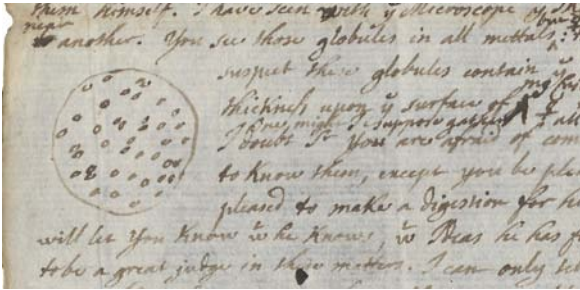 them himself. I have seen with ye Microscope
near
to another. You see those globules in all mettals,
suspect these globules contain ye
thickness upon ye surface of
One might I suppose
I doubt If You are afraid of com
to know them, except you be ple
pleased to make a digestion for h
will let You Know wt he knows, wt Ideas he has f
to be a great judge in these matters. I can only te